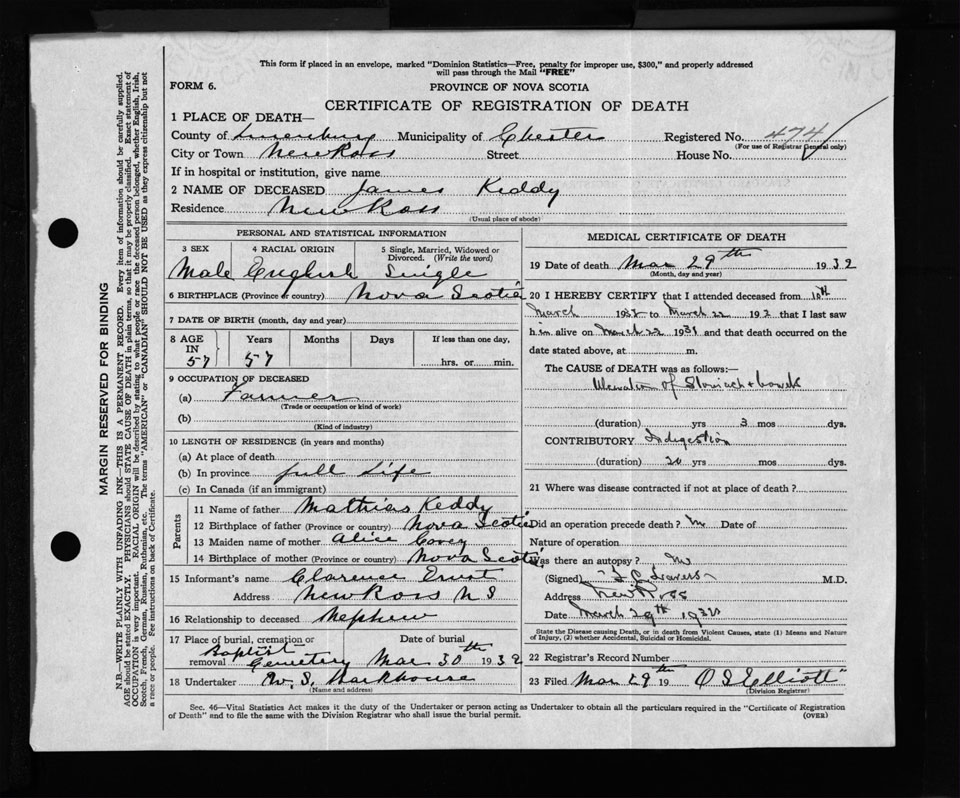 This form if placed in an envelope, marked "Dominion Statistics—Free, penalty for improper use, $300," and properly addressed
will pass through the Mail "FREE"
FORM 6.
PROVINCE OF NOVA SCOTIA
CERTIFICATE OF REGISTRATION OF DEATH
1 PLACE OF DEATH—
County of Lunenburg Municipality of Chester Registered No. 474
(For use of Registrar General only)
City or Town New Ross Street House No.
If in hospital or institution, give name
2 NAME OF DECEASED James Keddy
Residence New Ross
(Usual place of abode)
PERSONAL AND STATISTICAL INFORMATION
3 SEX 4 RACIAL ORIGIN 5 Single, Married, Widowed or
Divorced. (Write the word)
Male English Single
6 BIRTHPLACE (Province or country) Nova Scotia
7 DATE OF BIRTH (month, day and year)
8 AGE Years Months Days If less than one day,
IN
57 57 hrs. or min.
9 OCCUPATION OF DECEASED
(a) Farmer
(Trade or occupation or kind of work)
(b)
(Kind of industry)
10 LENGTH OF RESIDENCE (in years and months)
(a) At place of death
(b) In province full Life
(c) In Canada (if an immigrant)
Parents
11 Name of father Mathias Keddy
12 Birthplace of father (Province or country) Nova Scotia
13 Maiden name of mother Alice Corey
14 Birthplace of mother (Province or country) Nova Scotia
15 Informant's name Clarence Ernst
Address New Ross N S
16 Relationship to deceased Nephew
17 Place of burial, cremation or Date of burial
removal Baptist Cemetery Mar 30th 1932
18 Undertaker W. S.
(Name and address)
MEDICAL CERTIFICATE OF DEATH
19 Date of death Mar 29th 1932
(Month, day and year)
20 I HEREBY CERTIFY that I attended deceased from 10th
March 193 to March 22 193 that I last saw
him alive on March 22 193 and that death occurred on the
date stated above, at m.
The CAUSE of DEATH was as follows:—
of Stomach + bowels
(duration) yrs 3 mos dys.
CONTRIBUTORY Indigestion
(duration) 20 yrs mos dys.
21 Where was disease contracted if not at place of death?
Did an operation precede death? No Date of
Nature of operation
Was there an autopsy? No
(Signed) M.D.
Address New Ross
Date March 29th 1932
State the Disease causing Death, or in death from Violent Causes, state (1) Means and Nature
of Injury, (2) whether Accidental, Suicidal or Homicidal.
22 Registrar's Record Number
23 Filed Mar 29th 19 O S Elliott
(Division Registrar)
Sec. 46—Vital Statistics Act makes it the duty of the Undertaker or person acting as Undertaker to obtain all the particulars required in the "Certificate of Registration
of Death" and to file the same with the Division Registrar who shall issue the burial permit.
(OVER)
MARGIN RESERVED FOR BINDING
N.B.—WRITE PLAINLY WITH UNFADING INK—THIS IS A PERMANENT RECORD. Every item of information should be carefully supplied.
AGE should be stated EXACTLY. PHYSICIANS should STATE CAUSE OF DEATH in plain terms, so that it may be properly classified. Exact statement of
OCCUPATION is very important. RACIAL ORIGIN will be described by stating to what people or race the deceased person belonged, whether English, Irish,
Scotch, French, German, Russian, Ruthenian, etc. The terms "AMERICAN" or "CANADIAN" SHOULD NOT BE USED as they express citizenship but not
a race or people. See instructions on back of Certificate.